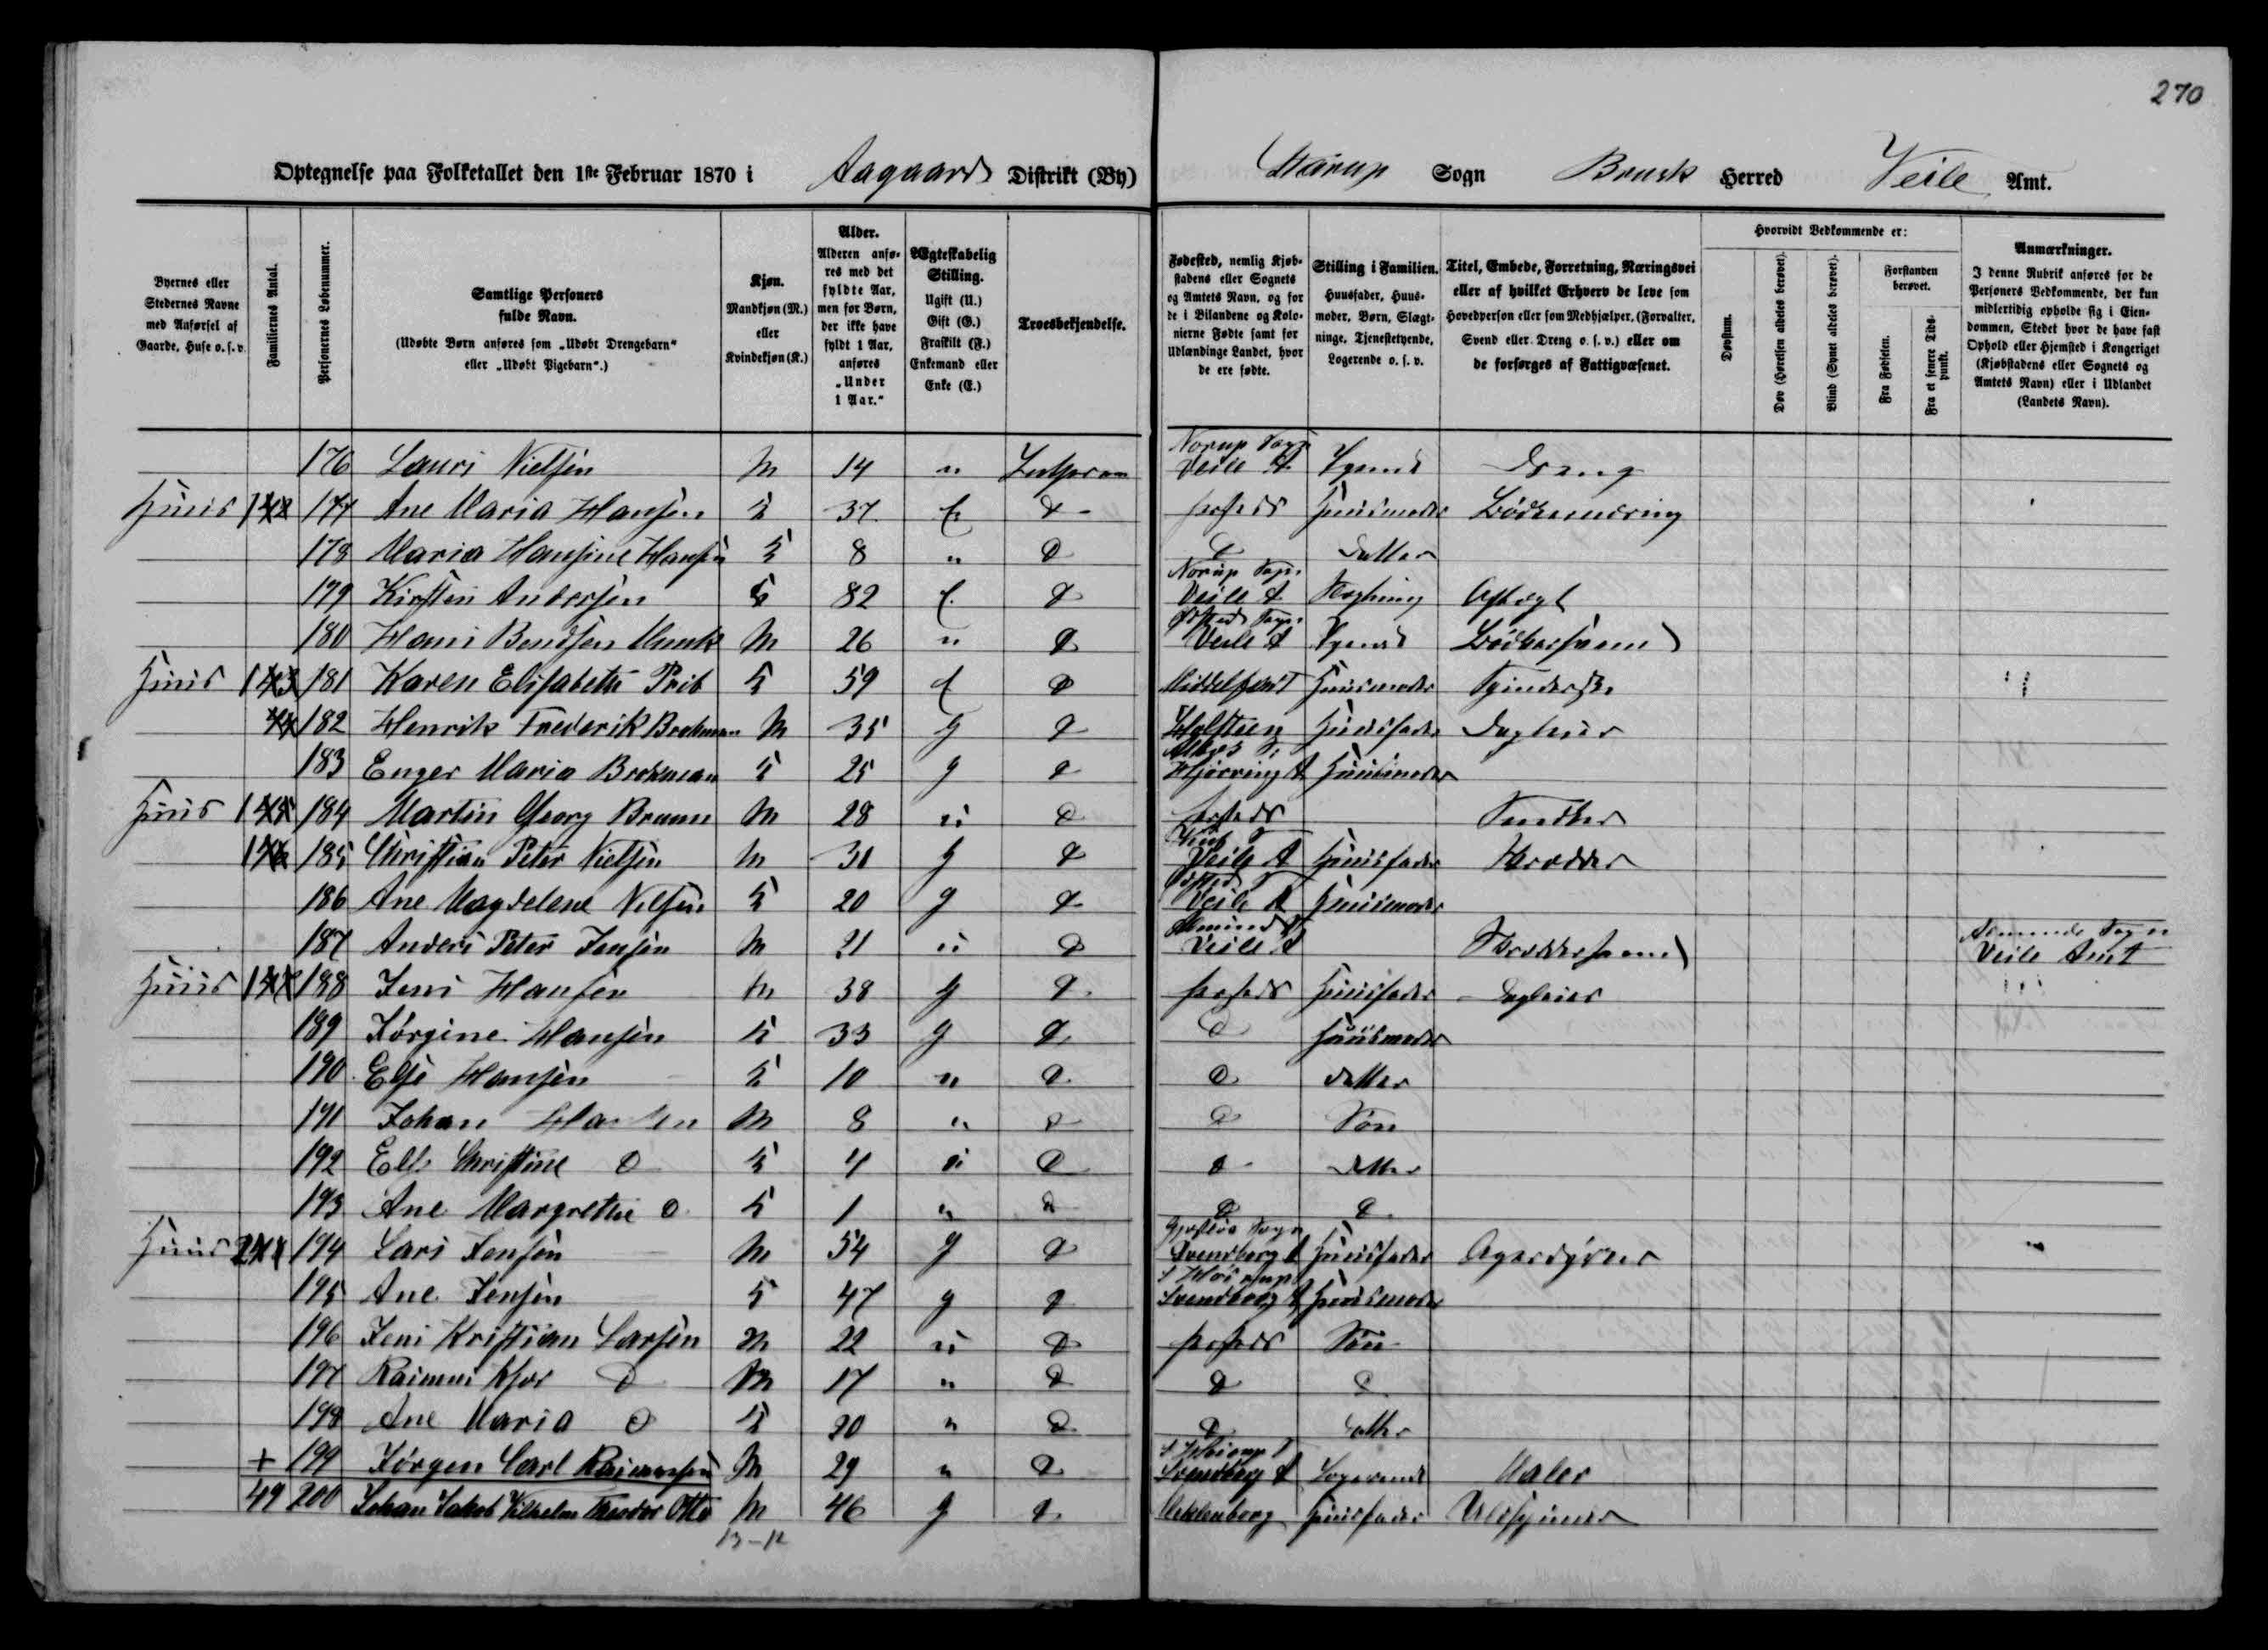 270
Optegnelse paa Folketallet den 1ste Februar 1870 i Aagaard Distrikt (By) Starup Sogn Brusk Herred Veile Amt.
Byernes eller Stedernes Navne med Anførsel af Gaarde, Huse o. s. v.
Familiernes Antal.
Personernes Løbenummer.
Samtlige Personers fulde Navn.
(Udøbte Børn anføres som „Udøbt Drengebarn“ eller „Udøbt Pigebarn“.)
Kjøn.
Mandkjøn (M.) eller Kvindekjøn (K.)
Alder.
Alderen anføres med det fyldte Aar, men for Børn, der ikke have fyldt 1 Aar, anføres „Under 1 Aar.“
Ægteskabelig Stilling.
Ugift (U.) Gift (G.) Fraskilt (F.) Enkemand eller Enke (E.)
Troesbekjendelse.
Fødested, nemlig Kjøbstadens eller Sognets og Amtets Navn, og for de i Bilandene og Kolonierne Fødte samt for Udlændinge Landet, hvor de ere fødte.
Stilling i Familien.
Huusfader, Huusmoder, Børn, Slægtninge, Tjenestetyende, Logerende o. s. v.
Titel, Embede, Forretning, Næringsvei eller af hvilket Erhverv de leve som Hovedperson eller som Medhjælper, (Forvalter, Svend eller Dreng o. s. v.) eller om de forsørges af Fattigvæsenet.
Hvorvidt Vedkommende er:
Døvstum.
Døv (Hørelsen aldeles berøvet).
Blind (Synet aldeles berøvet).
Forstanden berøvet.
Fra Fødselen.
Fra et senere Tidspunkt.
Anmærkninger.
I denne Rubrik anføres for de Personers Vedkommende, der kun midlertidig opholde sig i Eiendommen, Stedet hvor de have fast Ophold eller Hjemsted i Kongeriget (Kjøbstadens eller Sognets og Amtets Navn) eller i Udlandet (Landets Navn).
176 Laurs Nielsen M 14 u Lutheran Norup Sogn Veile A Tyende Dreng
Huus 142 177 Ane Maria Hansen K 37 E D hersteds Huusmoder Bødkernæring
178 Maria Hansine Hansen K 8 u D D Datter
179 Kirsten Andersen K 82 E D Norup Sogn Veile A Slægtning Aftægt
180 Hans Bendsen Munk M 26 u D Sogn Veile A Tyende Bødkersvend
Huus 143 181 Karen Elisabeth Prib K 59 E D Middelfart Huusmoder Spinderske
44 182 Henrik Frederik Brokman M 35 g D Holsteen Huusfader Dagleier
183 Enger Maria Brokman K 25 g D Hjørring A Huusmoder
Huus 145 184 Martin Georg Bruun M 28 u D hersteds Snedker
146 185 Christian Peter Nielsen M 31 g D Veile A Huusfader Skrædder
186 Ane Magdelene Nielsen K 20 g D Veile A Huusmoder
187 Anders Peter Jensen M 21 u D Almind S Veile A Skræddersvend Almind Sogn Veile Amt
Huus 147 188 Jens Hansen M 38 g D hersteds Huusfader Dagleier
189 Jørgine Hansen K 33 g D D Huusmoder
190 Else Hansen K 10 u D D Datter
191 Johan Hansen M 8 u D D Søn
192 Else Christine D K 4 u D D Datter
193 Ane Margrethe D K 1 u D D D
Huus 194 Lars Jensen M 54 g D Sogn Svendborg A Huusfader Agerdyrker
195 Ane Jensen K 47 g D Svendborg A Huusmoder
196 Jens Kristian Larsen M 22 u D hersteds Søn
197 Rasmus D M 17 u D D D
198 Ane Maria D K 20 u D D Datter
+ 199 Jørgen Carl Rasmussen M 29 u D Svendborg A Logerende Maler
49 200 Johan Jakob Vilhelm Theodor Otto M 46 g D Meklenborg Huusfader Uldspinder
13-12